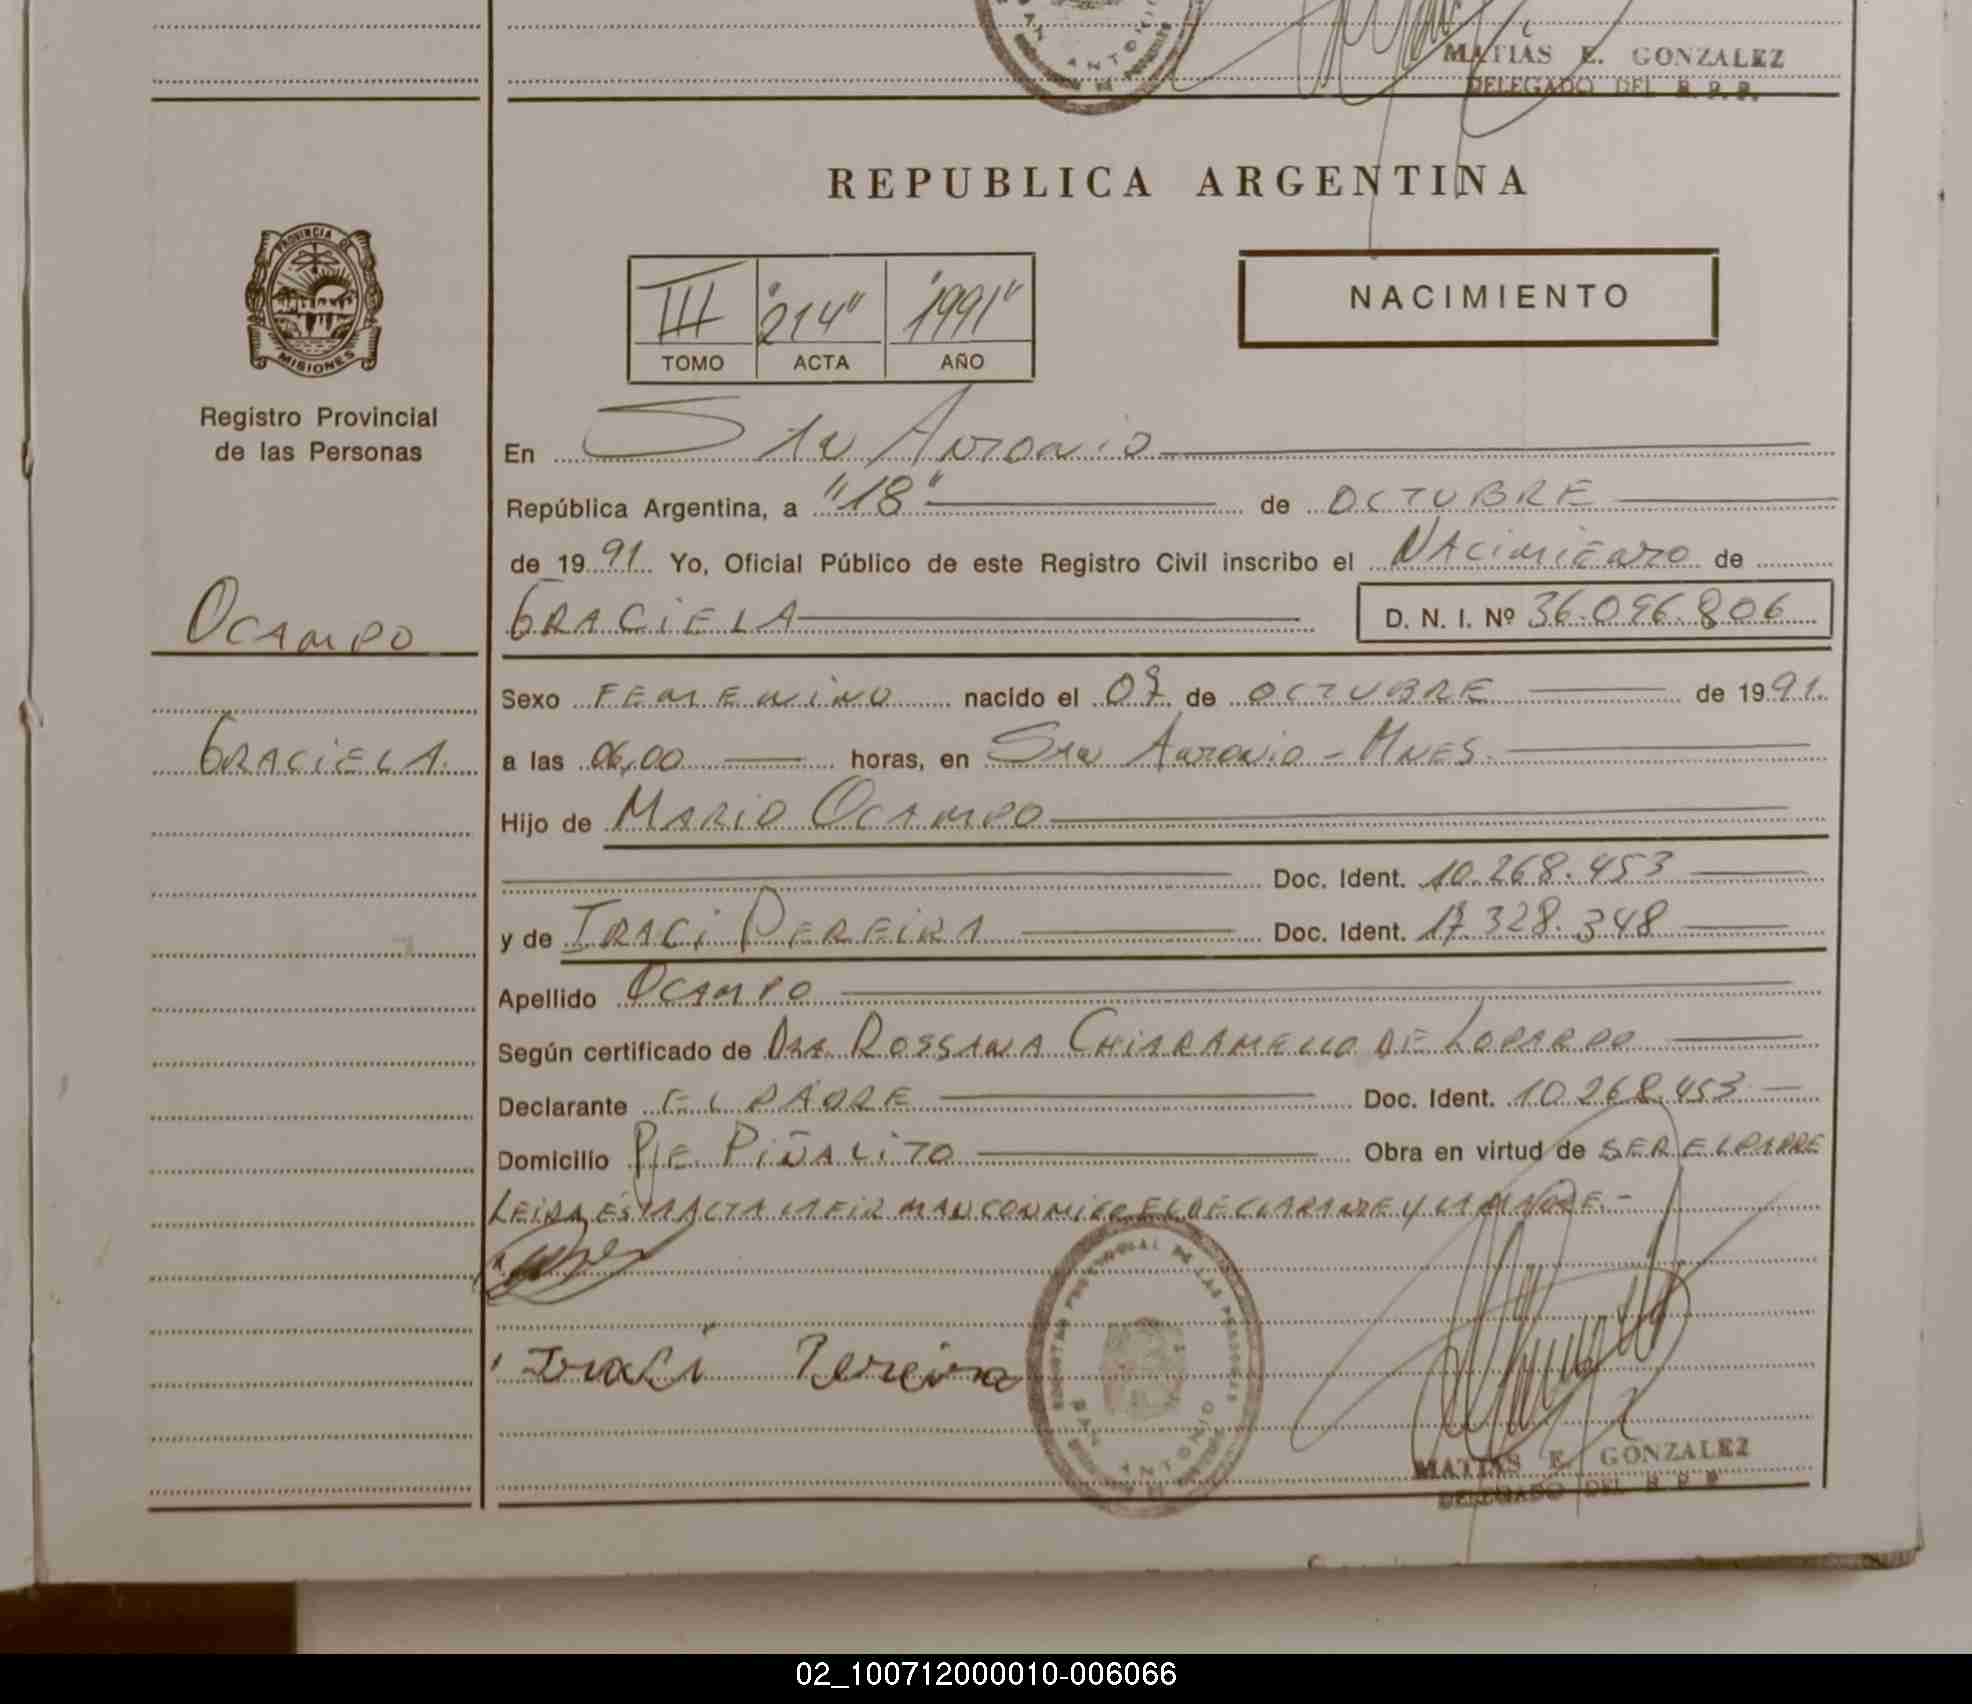 SAN ANTONIO
MATIAS E. GONZALEZ
DELEGADO DEL R. P. P.
REPUBLICA ARGENTINA
PROVINCIA DE
MISIONES
III "214" "1991"
TOMO ACTA AÑO
NACIMIENTO
Registro Provincial
de las Personas
En San Antonio
República Argentina, a "18" de OCTUBRE
de 1991 Yo, Oficial Público de este Registro Civil inscribo el NACIMIENTO de
OCAMPO
GRACIELA D. N. I. Nº 36.096.806
Sexo FEMENINO nacido el 09 de OCTUBRE de 1991
GRACIELA
a las 06,00 horas, en San Antonio - Mnes.
Hijo de MARIO OCAMPO
Doc. Ident. 10.268.453
y de IRACI PEREIRA Doc. Ident. 17.328.348
Apellido OCAMPO
Según certificado de Dra. ROSSANA CHIARAMELLO DE LOPARDO
Declarante EL PADRE Doc. Ident. 10.268.453
Domicilio Pje PIÑALITO Obra en virtud de SER EL PADRE
LEIDA ESTA ACTA LA FIRMAN CONMIGO EL DECLARANTE Y LA MADRE.-
Iraci Pereira
REGISTRO PROVINCIAL DE LAS PERSONAS
SAN ANTONIO
MATIAS E. GONZALEZ
DELEGADO DEL R P P
02_100712000010-006066